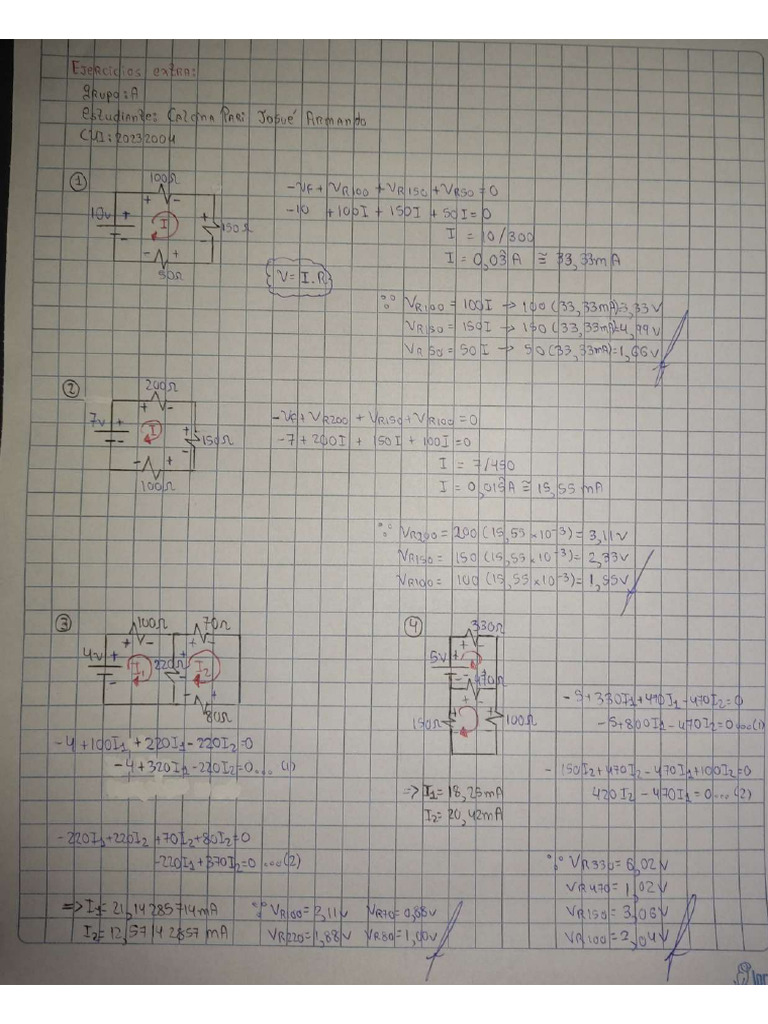 Ejercicios extra:
grupo: A
estudiante: Calcina Pari Josué Armando
CUI: 20232004
①
100Ω
10v
I
150Ω
50Ω
-VF + VR100 + VR150 + VR50 = 0
-10 + 100I + 150I + 50I = 0
I = 10/300
I = 0,03̂ A ≅ 33,33mA
V = I.R
∵ VR100 = 100I → 100(33,33mA)=3,33V
VR150 = 150I → 150(33,33mA)=4,99V
VR50 = 50I → 50(33,33mA)=1,66V
②
200Ω
7v
I
150Ω
100Ω
-VF + VR200 + VR150 + VR100 = 0
-7 + 200I + 150I + 100I = 0
I = 7/450
I = 0,015̂A ≅ 15,55 mA
∵ VR200 = 200(15,55x10⁻³) = 3,11v
VR150 = 150(15,55x10⁻³) = 2,33v
VR100 = 100(15,55x10⁻³) = 1,55v
③
100Ω 70Ω
4v
I1 220Ω I2
80Ω
-4+100I1+220I1-220I2=0
-4+320I1-220I2=0...(1)
-220I1+220I2+70I2+80I2=0
-220I1+370I2=0...(2)
=> I1= 21,14285714mA
I2= 12,57142857 mA
∵ VR100=2,11v VR70=0,88v
VR220=1,88v VR80=1,00v
④
330Ω
5v
470Ω
150Ω 100Ω
-5+330I1+470I1-470I2=0
-5+800I1-470I2=0...(1)
-150I2+470I2-470I1+100I2=0
420I2-470I1=0...(2)
=> I1= 18,25mA
I2= 20,42mA
∵ VR330=6,02v
VR470=1,02v
VR150=3,06v
VR100=2,04v